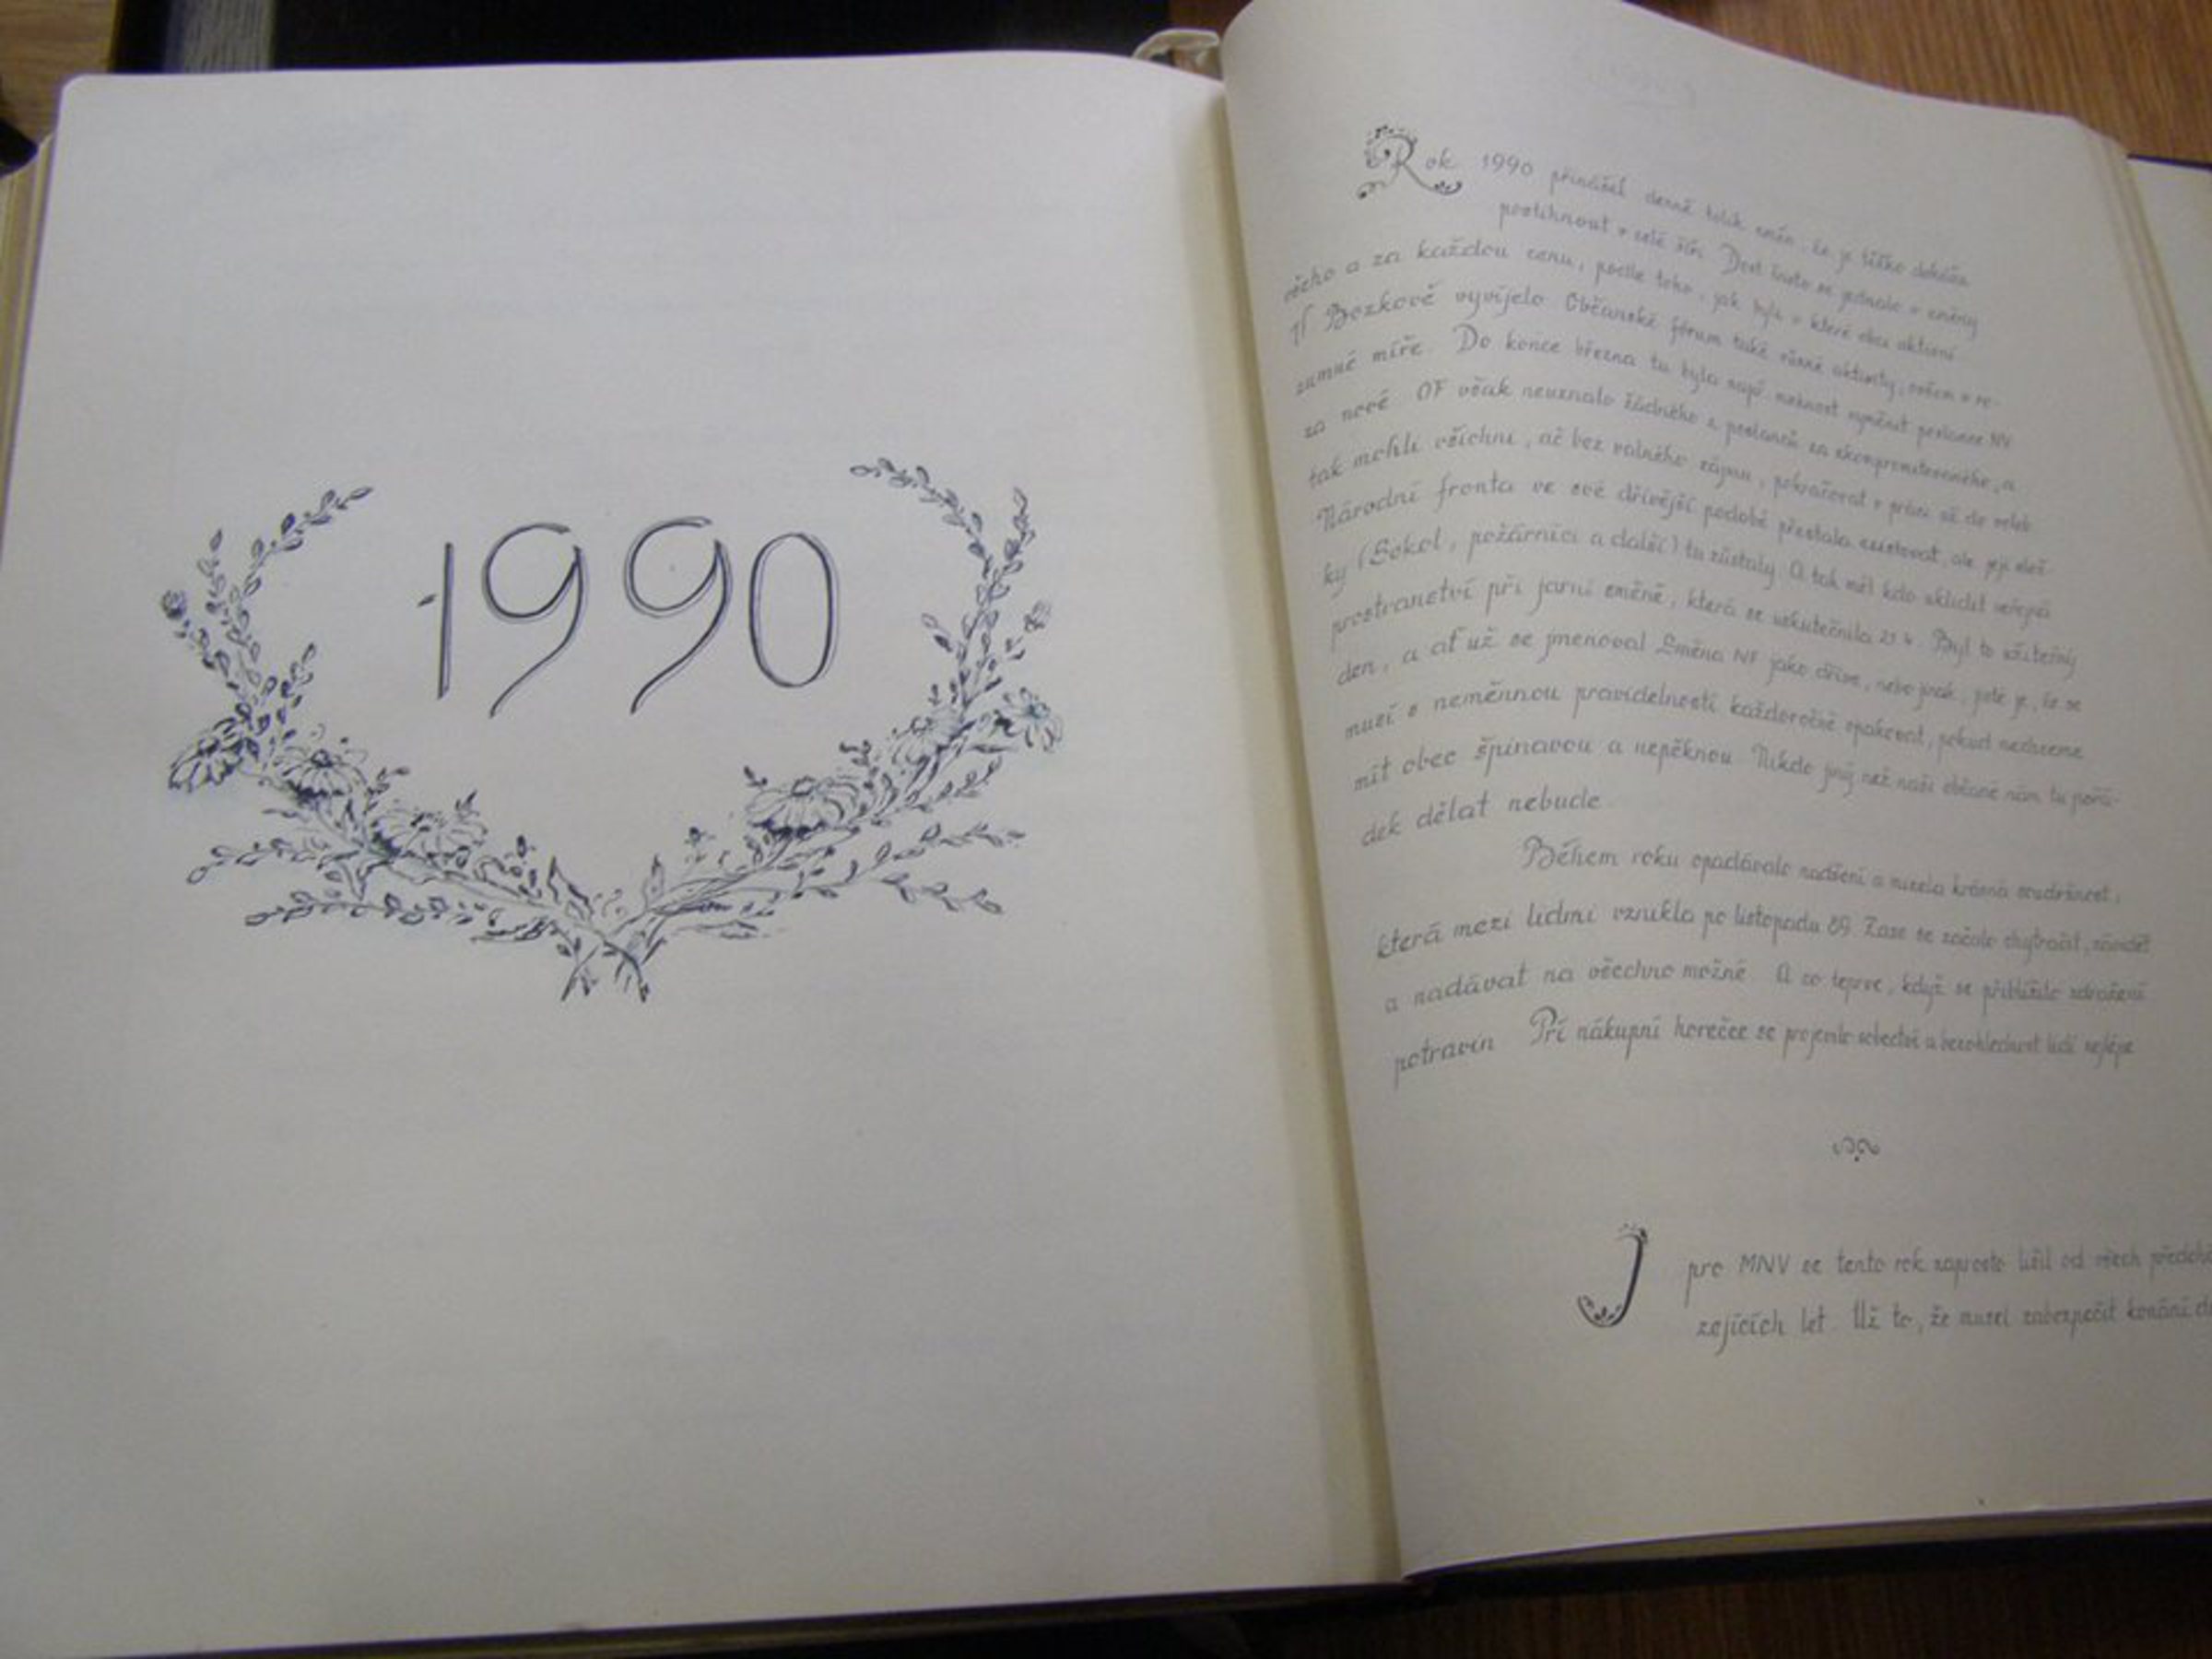 1990
Rok 1990 přinášel denně tolik změn, že je těžko dokážu
postihnout v celé šíři. Dost často se jednalo o změny
všeho a za každou cenu, podle toho, jak byli v které obci aktivní
V Bozkově vyvíjelo Občanské fórum také různé aktivity, ovšem v ro-
zumné míře. Do konce března tu byla např. možnost vyměnit poslance NV
za nové. OF však neuznalo žádného z poslanců za zkompromitovaného, a
tak mohli všichni, ač bez valného zájmu, pokračovat v práci až do voleb
Národní fronta ve své dřívější podobě přestala existovat, ale její slož-
ky (Sokol, požárníci a další) tu zůstaly. A tak měl kdo uklidit veřejná
prostranství při jarní směně, která se uskutečnila 21. 4. Byl to užitečný
den, a ať už se jmenoval Směna NF jako dříve, nebo jinak, jisté je, že se
musí s neměnnou pravidelností každoročně opakovat, pokud nechceme
mít obec špinavou a nepěknou. Nikdo jiný než naši občané nám tu pořá-
dek dělat nebude.
Během roku opadávalo nadšení a mizela krásná soudržnost,
která mezi lidmi vznikla po listopadu 89. Zase se začalo chytračit, závidět
a nadávat na všechno možné. A co teprve, když se přiblížilo zdražení
potravin. Při nákupní horečce se projevilo sobectví a bezohlednost lidí nejlépe
I pro MNV se tento rok naprosto lišil od všech předchá
zejících let. Už to, že musel zabezpečit konání